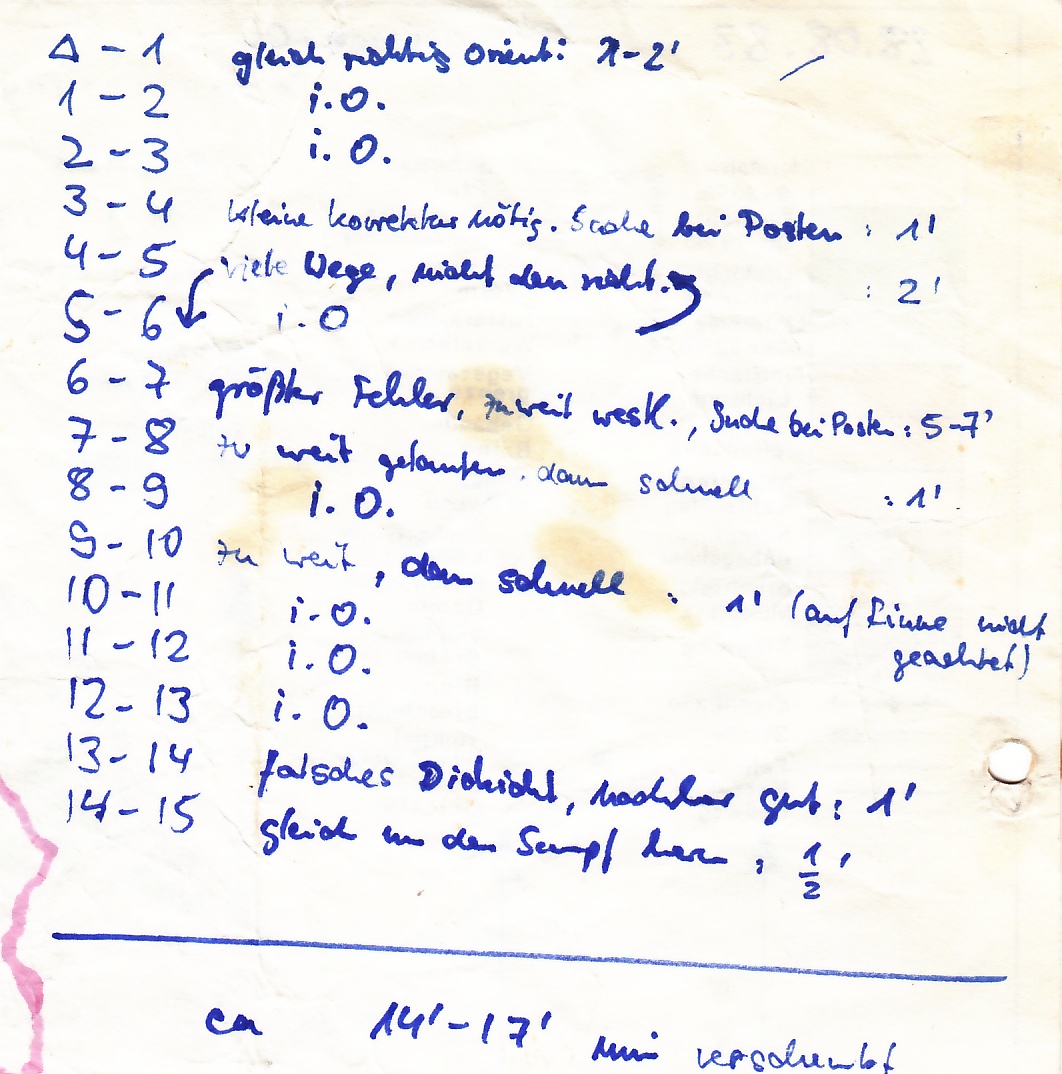 Δ - 1 gleich richtig orient: 1-2'
1 - 2 i.O.
2 - 3 i.O.
3 - 4 kleine Korrektur nötig. Suche bei Posten : 1'
4 - 5 viele Wege, nicht den richt. : 2'
5 - 6 i.O
6 - 7 größter Fehler, zu weit westl., Suche bei Posten : 5-7'
7 - 8 zu weit gelaufen, dann schnell : 1'
8 - 9 i.O.
9 - 10 zu weit, dann schnell : 1' (auf Rinne nicht
geachtet)
10 - 11 i.O.
11 - 12 i.O.
12 - 13 i.O.
13 - 14 falsches Dickicht, nachher gut : 1'
14 - 15 gleich um den Sumpf : 1/2'
ca 14'-17' min verschenkt